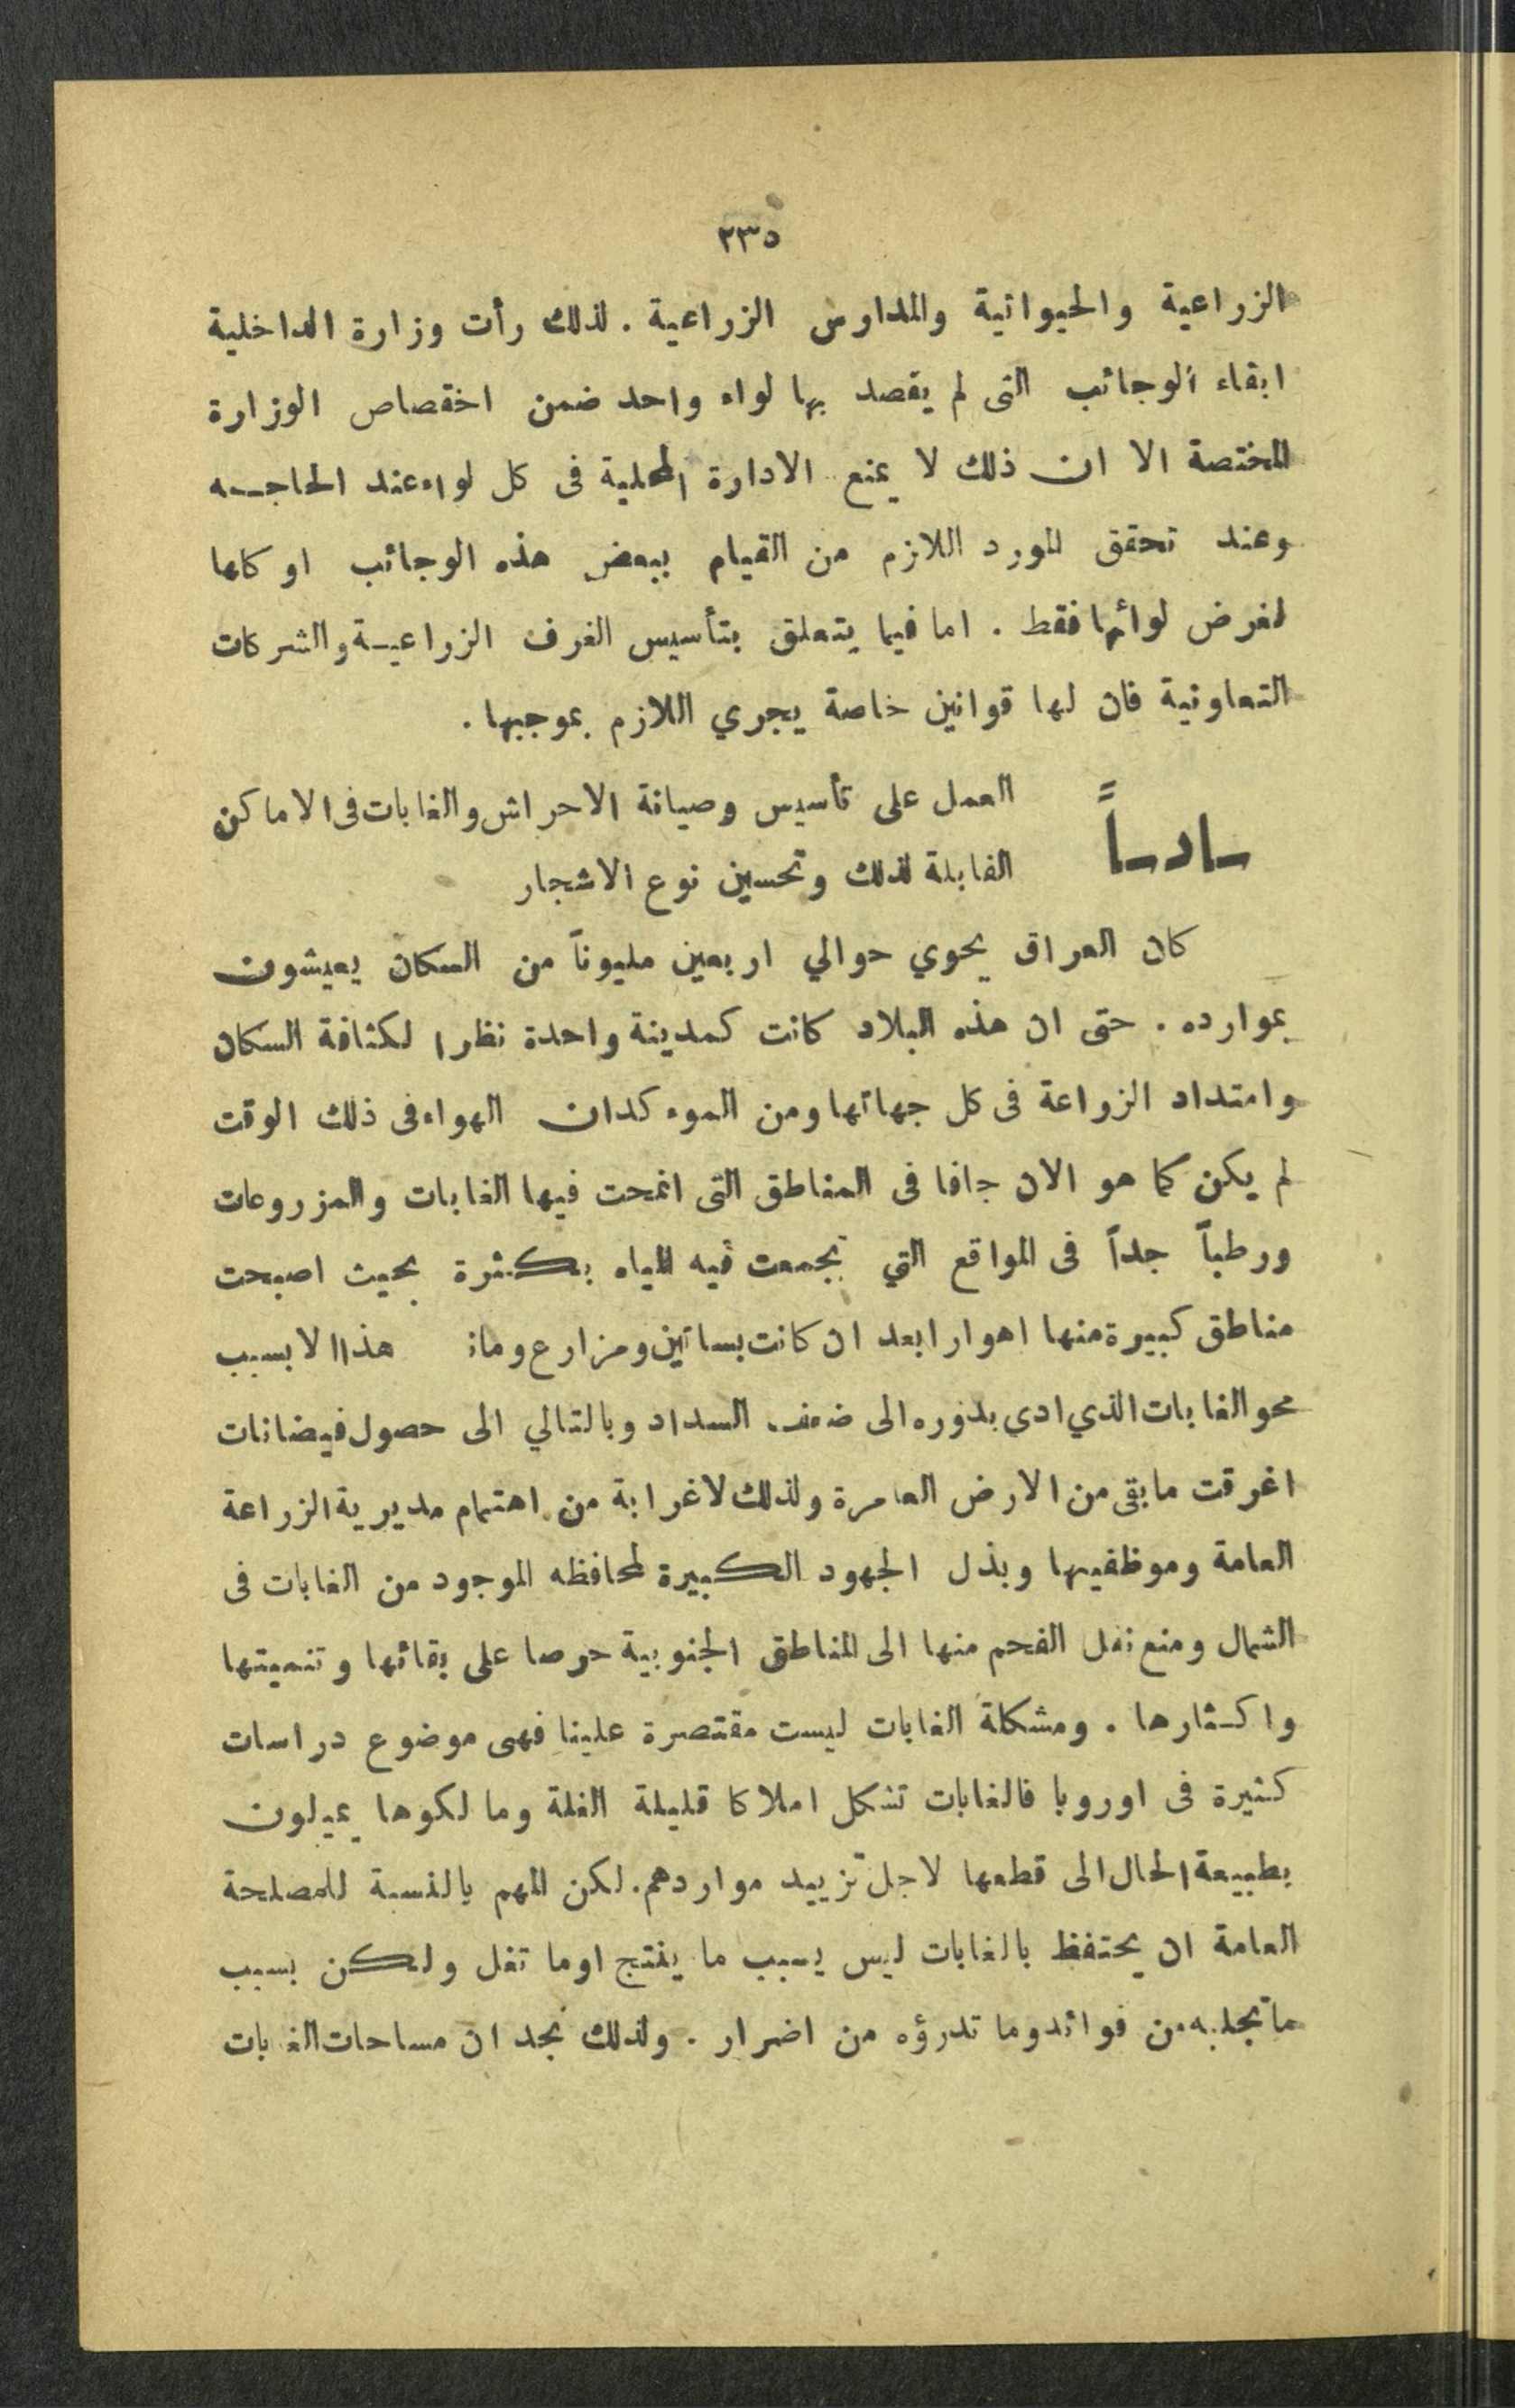 ٢٣٥
الزراعية والحيوانية والمدارس الزراعية . لذلك رأت وزارة الداخلية
ابقاء الوجائب التى لم يقصد بها لواء واحد ضمن اختصاص الوزارة
المختصة الا ان ذلك لا يمنع الادارة المحلية فى كل لواء عند الحاجـه
وعند تحقق المورد اللازم من القيام ببعض هذه الوجائب او كلها
لغرض لوائها فقط . اما فيما يتعلق بتأسيس الغرف الزراعيـة والشركات
التعاونية فان لها قوانين خاصة يجري اللازم بموجبها .
سادساً = العمل على تأسيس وصيانة الاحراش والغابات فى الاماكن
القابلة لذلك وتحسين نوع الاشجار
كان العراق يحوي حوالي اربعين مليوناً من السكان يعيشون
بموارده . حتى ان هذه البلاد كانت كمدينة واحدة نظرا لكثافة السكان
وامتداد الزراعة فى كل جهاتها ومن الموء كدان الهواء فى ذلك الوقت
لم يكن كما هو الان جافا فى المناطق التى انمحت فيها الغابات والمزروعات
ورطباً جداً فى المواقع التي تجمعت فيه المياه بكثرة بحيث اصبحت
مناطق كبيرة منها اهوارا بعد ان كانت بساتين ومزارع وما هذا الا بسبب
محو الغابات الذي ادى بدوره الى ضعف السداد وبالتالي الى حصول فيضانات
اغرقت ما بقى من الارض العامرة ولذلك لا غرابة من اهتمام مديرية الزراعة
العامة وموظفيها وبذل الجهود الكبيرة لمحافظه الموجود من الغابات فى
الشمال ومنع نقل الفحم منها الى المناطق الجنوبية حرصا على بقائها وتنميتها
واكـثارها . ومشكلة الغابات ليست مقتصرة علينا فهى موضوع دراسات
كثيرة فى اوروبا فالغابات تشكل املاكا قليلة الغلة ومالكوها يميلون
بطبيعة الحال الى قطعها لاجل تزييد مواردهم. لكن المهم بالنسبة للمصلحة
العامة ان يحتفظ بالغابات ليس بسبب ما ينتج اوما تغل ولكن بسبب
ما تجلبه من فوائد وما تدرؤه من اضرار . ولذلك نجد ان مساحات الغابات